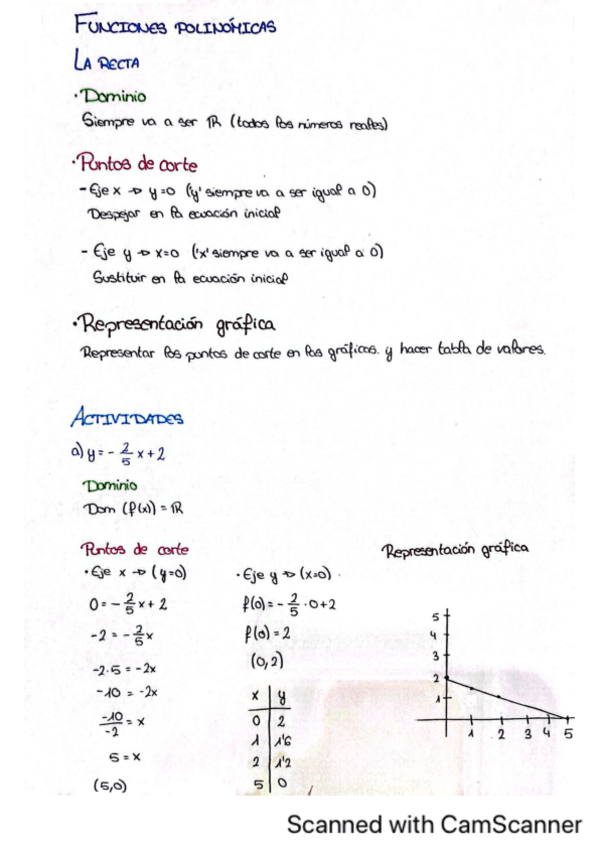 FUNCIONES POLINÓMICAS
LA RECTA
·Dominio
Siempre va a ser ℝ (todos los números reales)
·Puntos de corte
- Eje x → y=0 ('y' siempre va a ser igual a 0)
Despejar en la ecuación inicial
- Eje y → x=0 ('x' siempre va a ser igual a 0)
Sustituir en la ecuación inicial
·Representación gráfica
Representar los puntos de corte en las gráficas. y hacer tabla de valores.
ACTIVIDADES
a) y = - 2/5 x + 2
Dominio
Dom (f(x)) = ℝ
Puntos de corte
· Eje x → (y=0)
0 = - 2/5 x + 2
-2 = - 2/5 x
-2·5 = -2x
-10 = -2x
-10/-2 = x
5 = x
(5,0)
· Eje y → (x=0) ·
f(0) = - 2/5 · 0 + 2
f(0) = 2
(0,2)
x y
0 2
1 1'6
2 1'2
5 0
Representación gráfica
5
4
3
2
1
1 2 3 4 5
Scanned with CamScanner